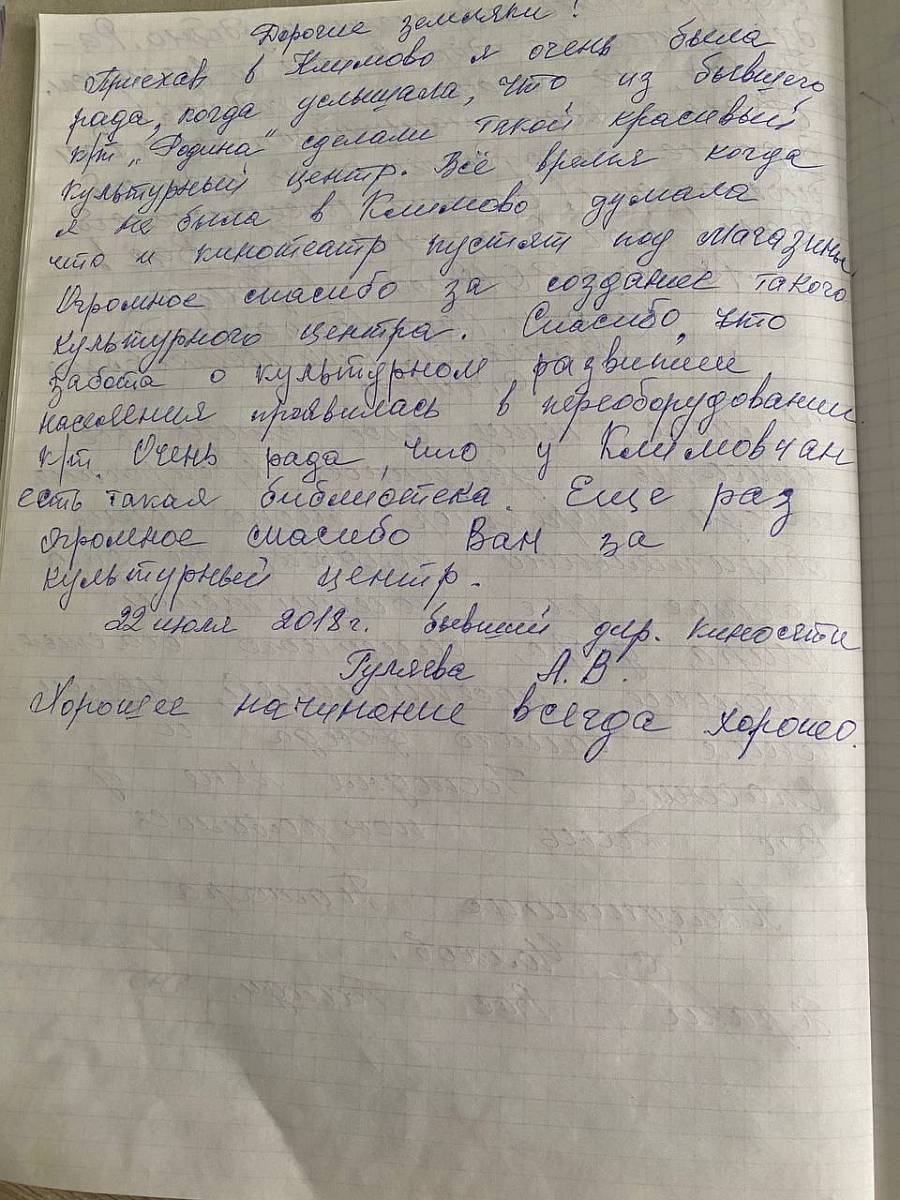 Дорогие земляки!
Приехав в Климово я очень была
рада, когда услышала, что из бывшего
к/т „Родина" сделали такой красивый
культурный центр. Всё время когда
я не была в Климово думала
что и кинотеатр пустят под магазины
Огромное спасибо за создание такого
культурного центра. Спасибо, что
забота о культурном развитии
населения проявилась в переоборудовании
к/т. Очень рада, что у Климовчан
есть такая библиотека. Еще раз
огромное спасибо Вам за
культурный центр.
22 июля 2018г. бывший дир. киносети
Гуляева А.В.
Хорошее начинание всегда хорошо.